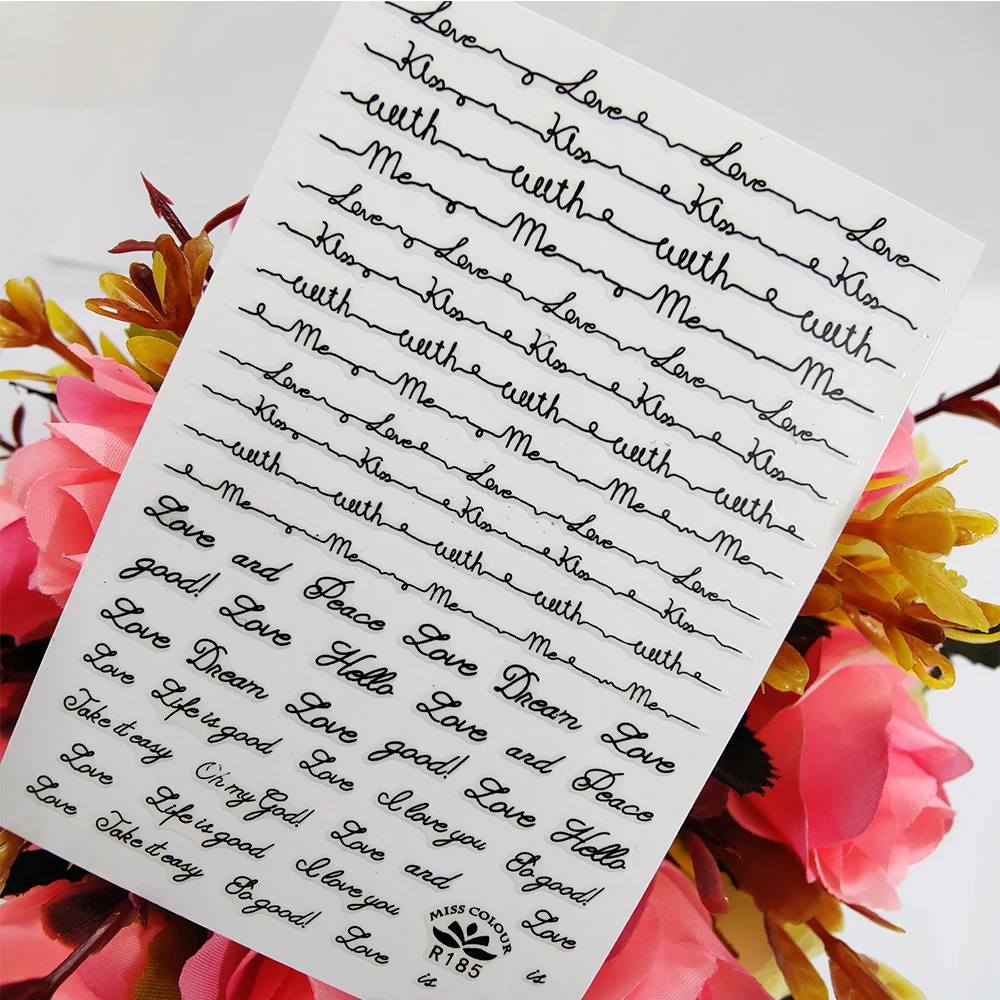 Love Love Love Love
Kiss Kiss Kiss Kiss
with with with with
Me Me Me Me
Love Love Love Love Love
Kiss Kiss Kiss Kiss Kiss
with with with with with
Me Me Me Me Me
Love Love Love Love Love
Kiss Kiss Kiss Kiss Kiss
with with with with with
Me Me Me Me Me
Love and Peace Love Dream Love
good! Love Hello Love and Peace
Love Dream Love good! Love Hello
Love Life is good Love I love you So good!
Take it easy Oh my God! Love and Love
Love Life is good I love you is
Love Take it easy So good! Love is
MISS COLOUR
R185